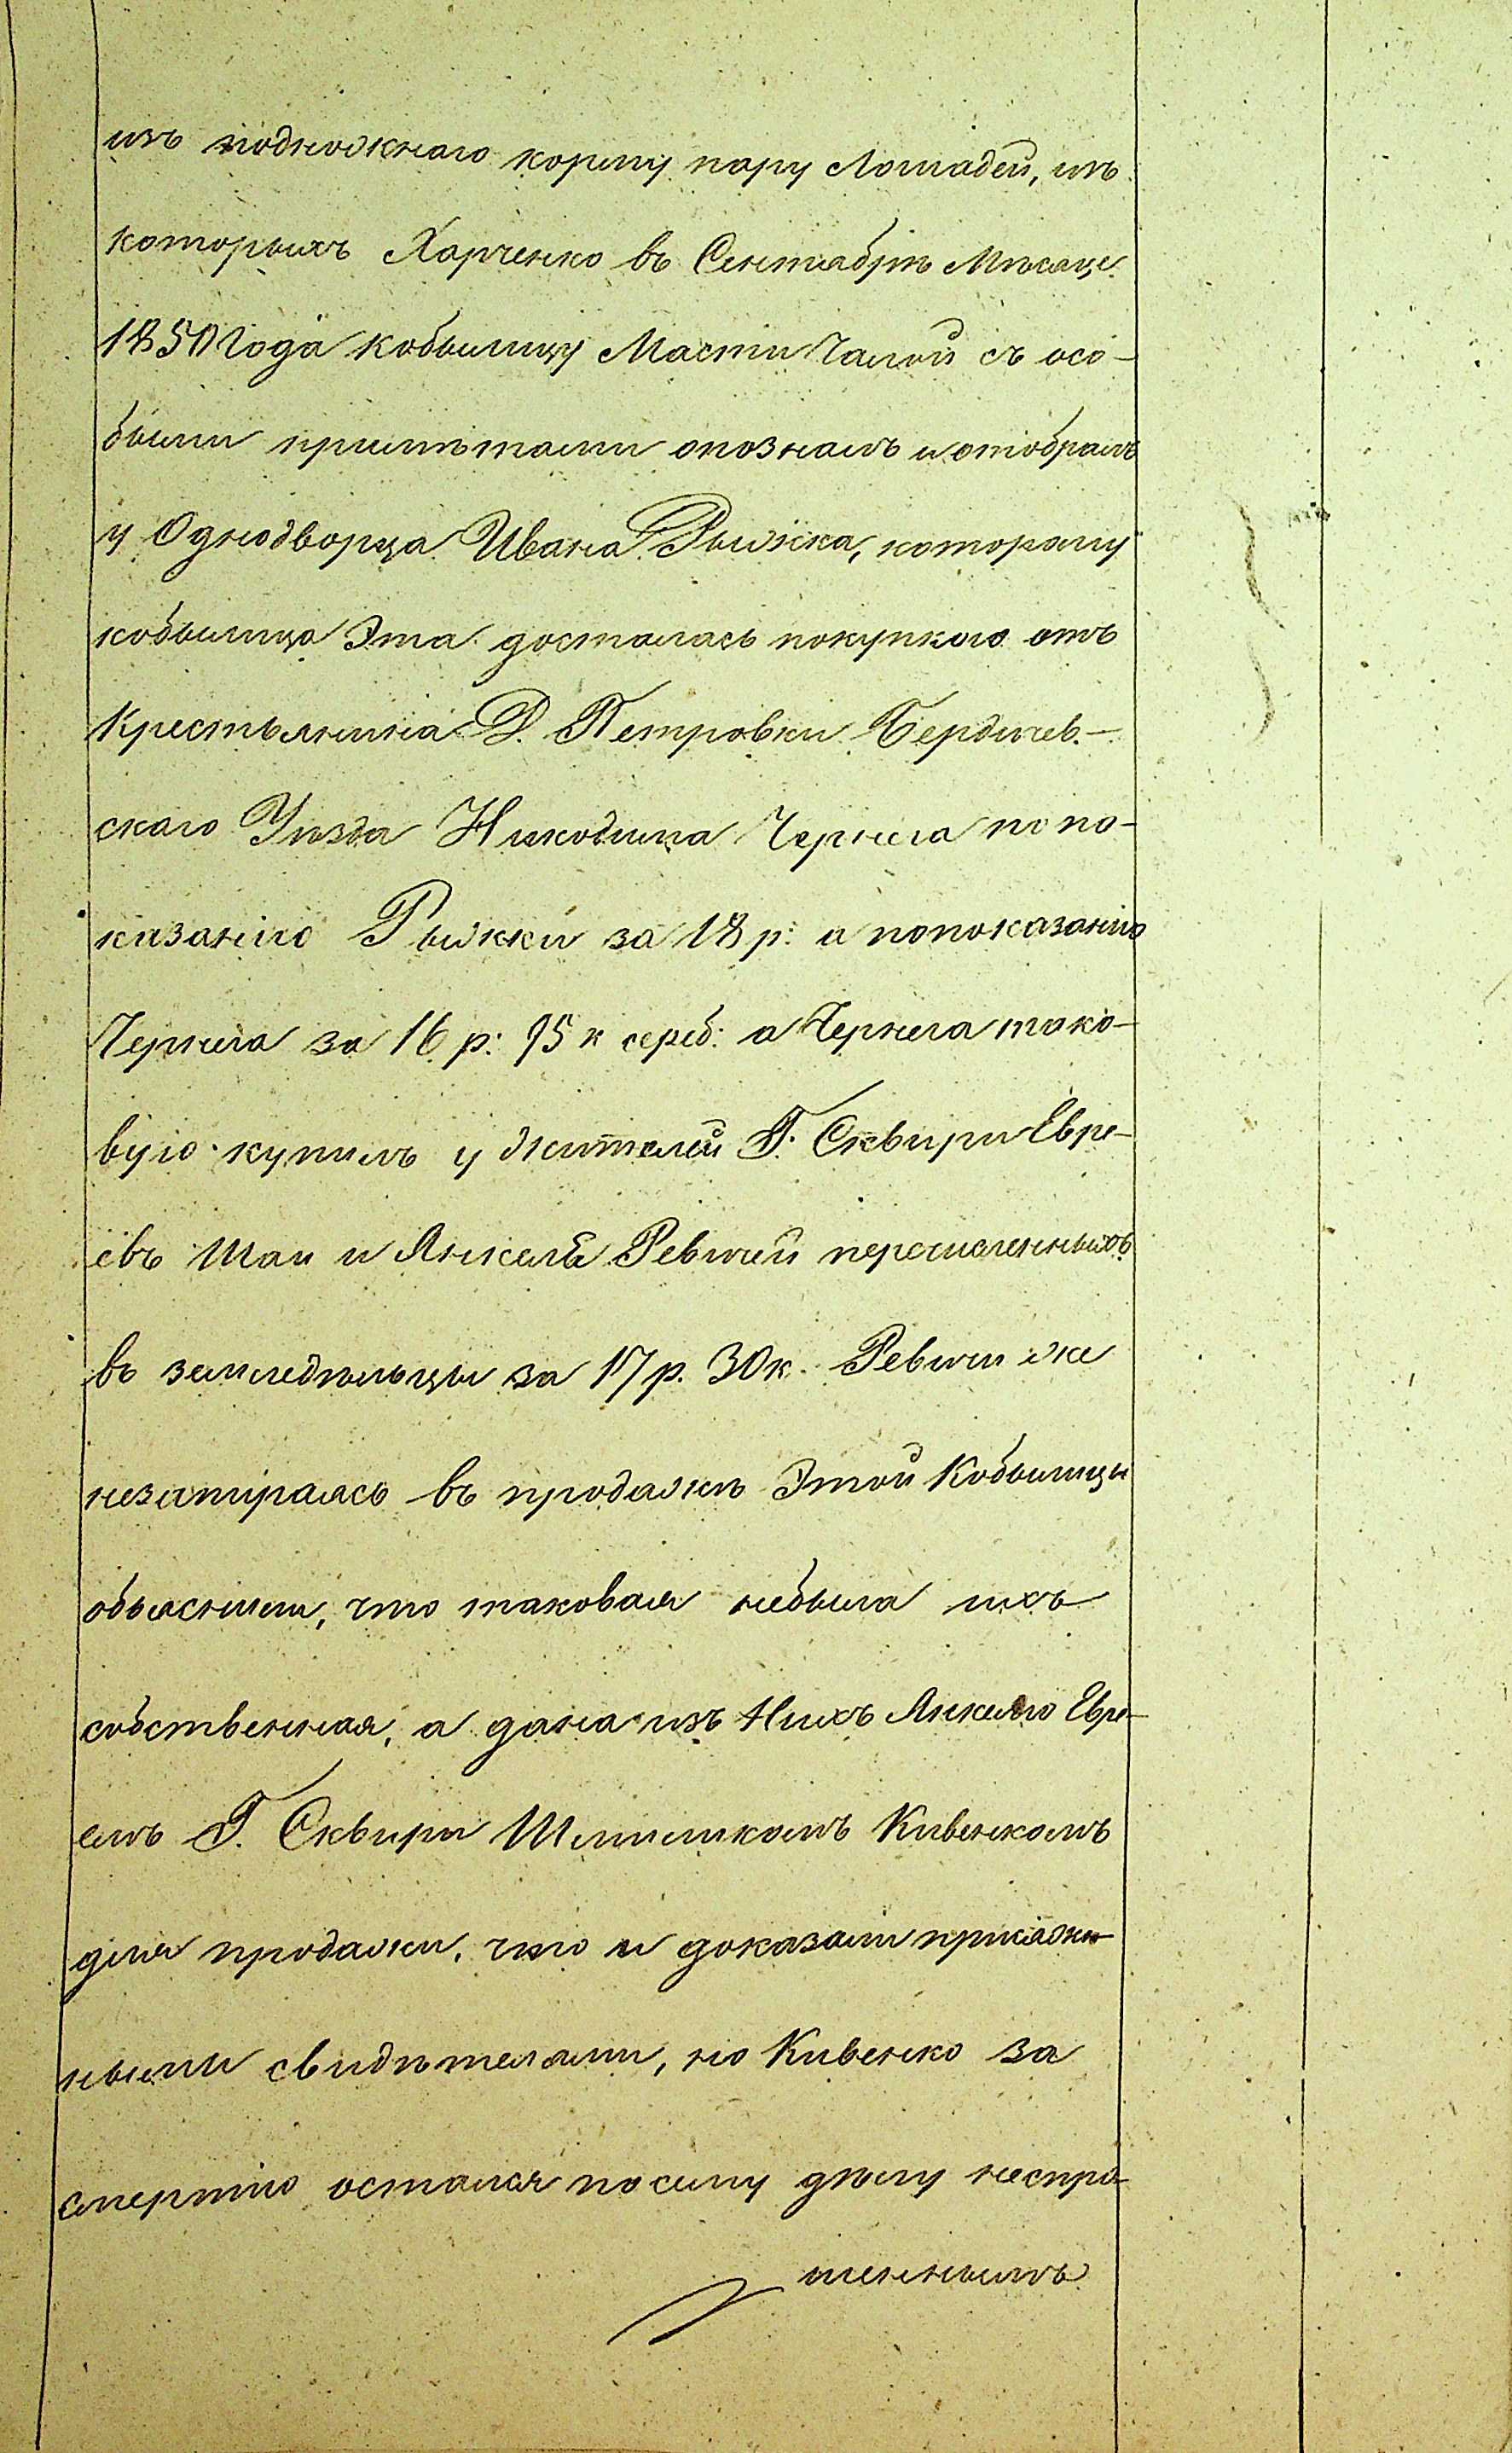 изъ подножнаго корму пару Лошадей, изъ
которыхъ Харченко въ Сентябрѣ Мѣсяце
1850 Года кобылицу Масти Чалой съ осо-
быми примѣтами опозналъ и отобралъ
у Однодворца Ивана Рыжка, которому
кобылица Эта досталась покупкою отъ
Крестьянина Д. Петровки Бердичев-
скаго Уѣзда Никодима Чернега по по-
казанію Рыжки за 18 р: а попоказанію
Чернега за 16 р: 95 к сереб: а Чернега тако-
вую купилъ у Жителей Г. Сквири Евре-
евъ Шаи и Янкеля Ревичей перечисленныхъ
въ земледѣльцы за 17 р. 30 к. Ревичи же
незапираясь въ продажѣ Этой Кобылицы
объяснили, что таковая небыла ихъ
собственная, а дана изъ Нихъ Янкелю Евре-
емъ Г. Сквири Шмилikомъ Кивенкомъ
для продажи, что и доказали присяж-
ными свидѣтелями, но Кивенко за
смертію остался по сему дѣлу неспро-
шеннымъ